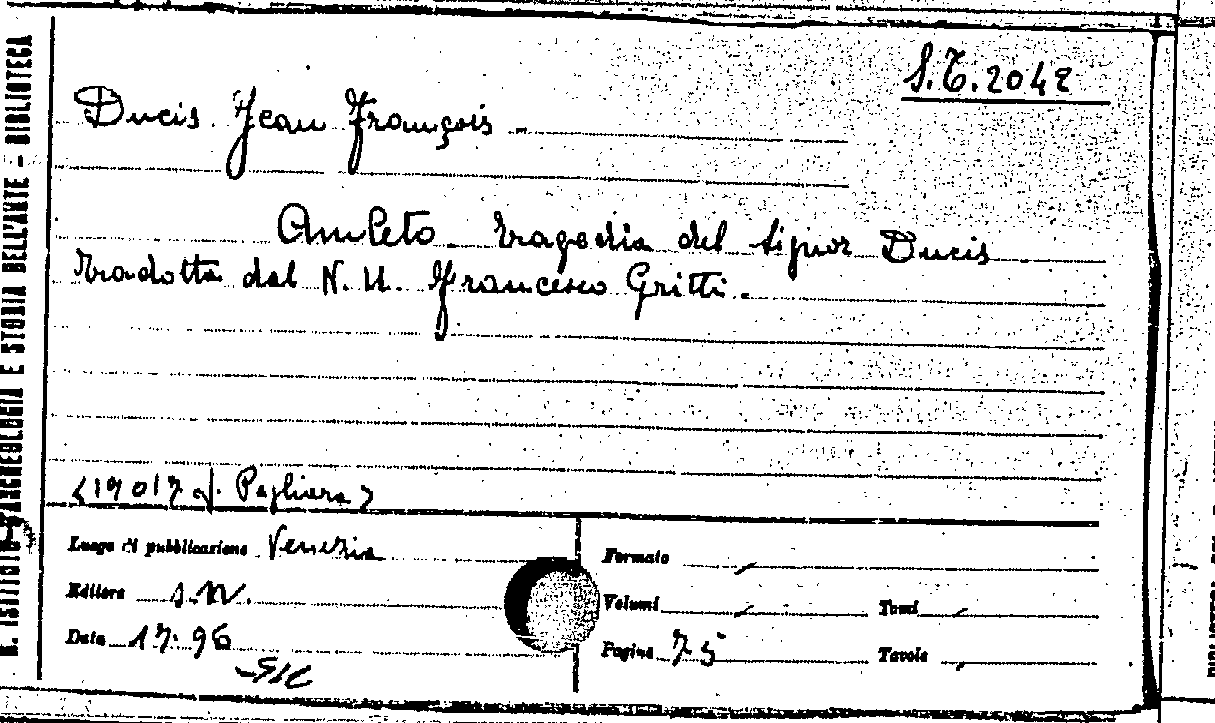 S.T. 2042
Ducis Jean François -
Amleto. Tragedia del signor Ducis
Tradotta dal N. U. Francesco Gritti.
Pagliara
Luogo di pubblicazione Venezia
Editore s.n.
Data 1796
Formato
Volumi Tomi
Pagine 75 Tavole
R. ISTITUTO D'ARCHEOLOGIA E STORIA DELL'ARTE - BIBLIOTECA